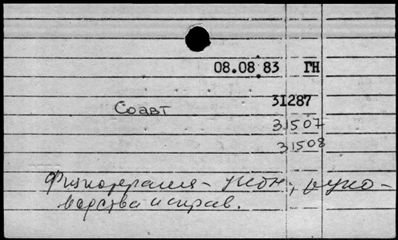 08.08.83 ГН
Соавт 31287
31507
31508
Физиотерапия - учебн., руко-
водства и справ.